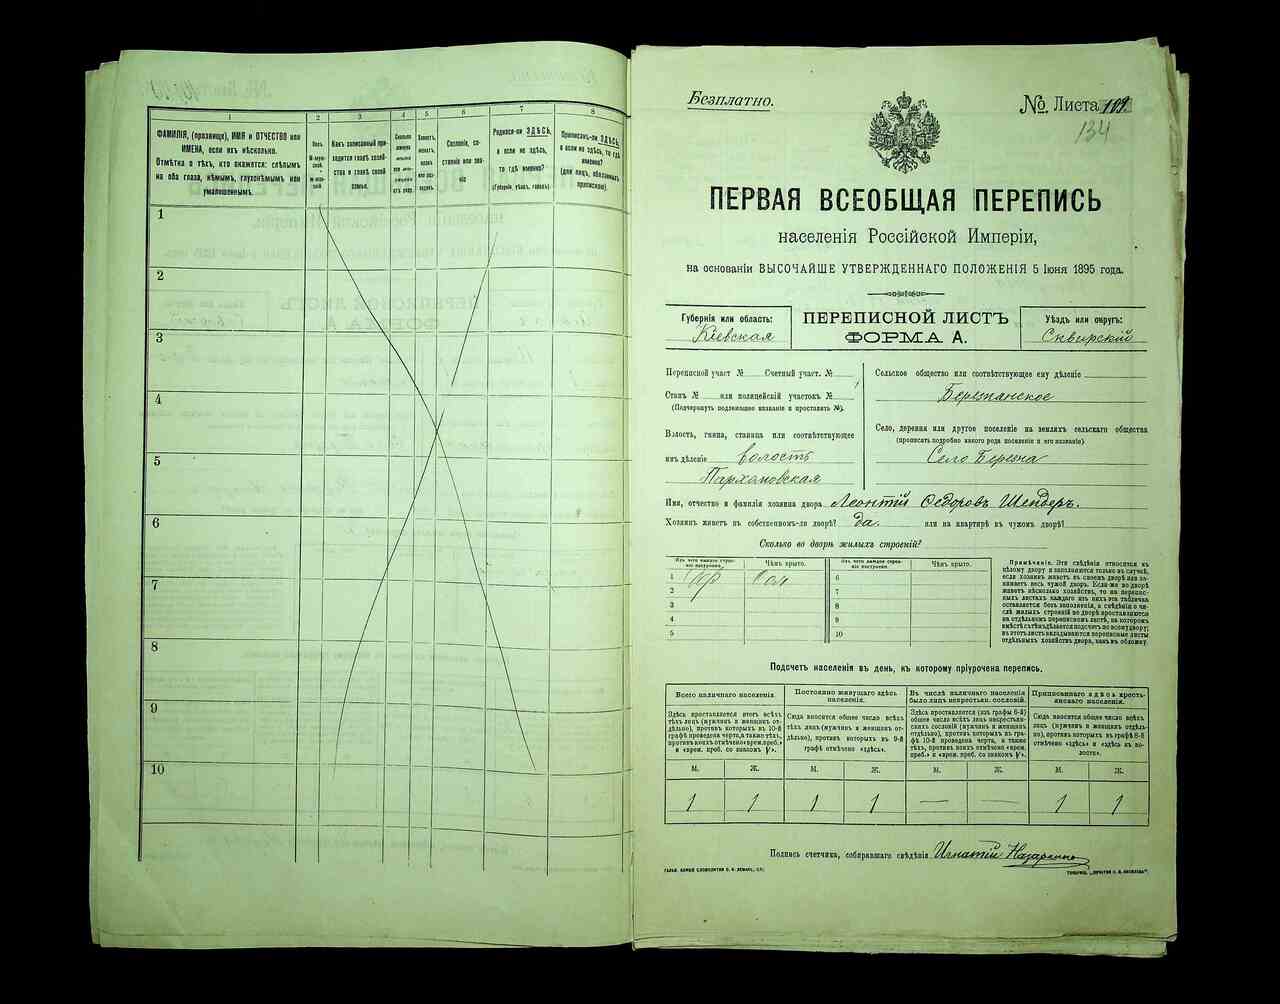 1 2 3 4 5 6 7 8
ФАМИЛІЯ, (прозвище), ИМЯ и ОТЧЕСТВО или
ИМЕНА, если ихъ нѣсколько.
Отмѣтка о тѣхъ, кто окажется: слѣпымъ
на оба глаза, нѣмымъ, глухонѣмымъ или
умалишеннымъ.
Полъ.
Какъ записанный при-
ходится главѣ хозяй-
ства и главѣ своей
семьи.
Сословіе, со-
стояніе или зва-
ніе
Родился-ли ЗДѢСЬ,
а если не здѣсь,
то гдѣ именно?
(Губернія, уѣздъ, городъ)
Приписанъ-ли ЗДѢСЬ,
а если не здѣсь, то гдѣ
именно?
(для лицъ, обязанныхъ
припискою).
1
2
3
4
5
6
7
8
9
10
Безплатно.
№ Листа 109.
134
ПЕРВАЯ ВСЕОБЩАЯ ПЕРЕПИСЬ
населенія Россійской Имперіи,
на основаніи ВЫСОЧАЙШЕ УТВЕРЖДЕННАГО ПОЛОЖЕНІЯ 5 Іюня 1895 года.
Губернія или область:
Кіевская
ПЕРЕПИСНОЙ ЛИСТЪ
ФОРМА А.
Уѣздъ или округъ:
Сквирскій
Переписной участ № Счетный участ. №
Станъ № или полицейскій участокъ №
(Подчеркнуть подлежащее названіе и проставить №).
Волость, гмина, станица или соотвѣтствующее
имъ дѣленіе волость
Пархомовская
Сельское общество или соотвѣтствующее ему дѣленіе
Березнанское
Село, деревня или другое поселеніе на земляхъ сельскаго общества
(прописать подробно какого рода поселеніе и его названіе)
Село Березна
Имя, отчество и фамилія хозяина двора Леонтій Ѳедоровъ Шендеръ.
Хозяинъ живетъ въ собственномъ-ли дворѣ? да. или на квартирѣ въ чужомъ дворѣ?
Сколько во дворѣ жилыхъ строеній?
Изъ чего каждое строе-
ніе построено.
Чѣмъ крыто.
Изъ чего каждое строе-
ніе построено.
Чѣмъ крыто.
1 6
2 7
3 8
4 9
5 10
Примѣчаніе. Эти свѣдѣнія относятся къ
цѣлому двору и заполняются только въ случаѣ,
если хозяинъ живетъ въ своемъ дворѣ или за-
нимаетъ весь чужой дворъ. Если-же во дворѣ
живетъ нѣсколько хозяйствъ, то на перепис-
ныхъ листахъ каждаго изъ нихъ эта табличка
оставляется безъ заполненія, а свѣдѣнія о чи-
слѣ жилыхъ строеній во дворѣ проставляются
на отдѣльномъ переписномъ листѣ, на которомъ
вмѣстѣ съ тѣмъ дѣлается подсчетъ по всему двору;
въ этотъ листъ вкладываются переписные листы
отдѣльныхъ хозяйствъ двора, какъ въ обложку.
Подсчетъ населенія въ день, къ которому пріурочена перепись.
Всего наличнаго населенія.
Постоянно живущаго здѣсь
населенія.
Въ числѣ наличнаго населенія
было лицъ некрестьян. сословій.
Приписаннаго здѣсь кресть-
янскаго населенія.
Здѣсь проставляется итогъ всѣхъ
тѣхъ лицъ (мужчинъ и женщинъ от-
дѣльно), противъ которыхъ въ 10-й
графѣ проведена черта, а также тѣхъ,
противъ коихъ отмѣчено «врем. преб.»
и «врем. преб. со знакомъ V».
Сюда вносится общее число всѣхъ
тѣхъ лицъ (мужчинъ и женщинъ от-
дѣльно), противъ которыхъ въ 9-й
графѣ отмѣчено «здѣсь».
Здѣсь проставляется (изъ графы 6-й)
общее число всѣхъ лицъ некрестьян-
скихъ сословій (мужчинъ и женщинъ
отдѣльно), противъ которыхъ въ гра-
фѣ 10-й проведена черта, а также
тѣхъ, противъ коихъ отмѣчено «врем.
преб.» и «врем. преб. со знакомъ V».
Сюда вносится общее число всѣхъ
лицъ (мужчинъ и женщинъ отдѣль-
но), противъ которыхъ въ графѣ 8-й
отмѣчено «здѣсь» и «здѣсь въ во-
лости».
М. Ж. М. Ж. М. Ж. М. Ж.
1 1 1 1 — — 1 1
Подпись счетчика, собиравшаго свѣдѣнія Игнатій Назаренко